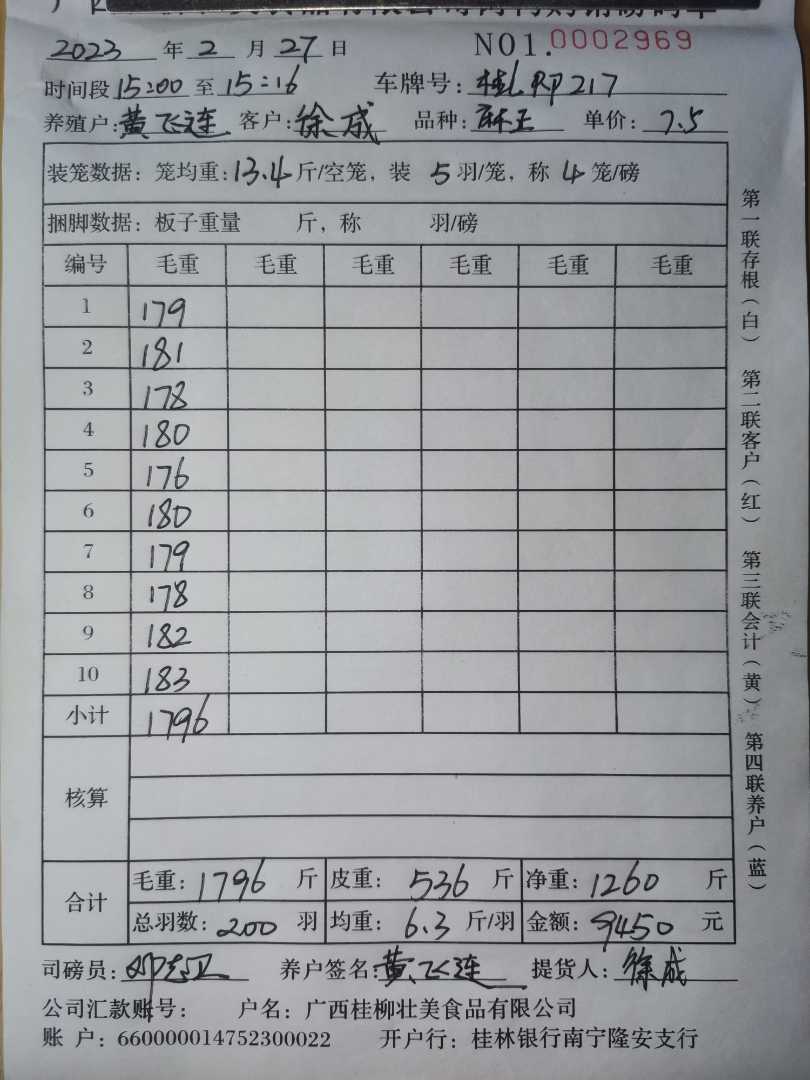 2023 年 2 月 27 日 NO1.0002969
时间段 15:00 至 15:16 车牌号: 桂RP217
养殖户: 黄飞连 客户: 徐成 品种: 麻王 单价: 7.5
装笼数据: 笼均重: 13.4 斤/空笼, 装 5 羽/笼, 称 4 笼/磅
捆脚数据: 板子重量 斤, 称 羽/磅
编号 毛重 毛重 毛重 毛重 毛重 毛重
1 179
2 181
3 178
4 180
5 176
6 180
7 179
8 178
9 182
10 183
小计 1796
核算
合计
毛重: 1796 斤 皮重: 536 斤 净重: 1260 斤
总羽数: 200 羽 均重: 6.3 斤/羽 金额: 9450 元
司磅员: 养户签名: 黄飞连 提货人: 徐成
公司汇款账号: 户名: 广西桂柳壮美食品有限公司
账 户: 660000014752300022 开户行: 桂林银行南宁隆安支行
第一联存根(白) 第二联客户(红) 第三联会计(黄) 第四联养户(蓝)